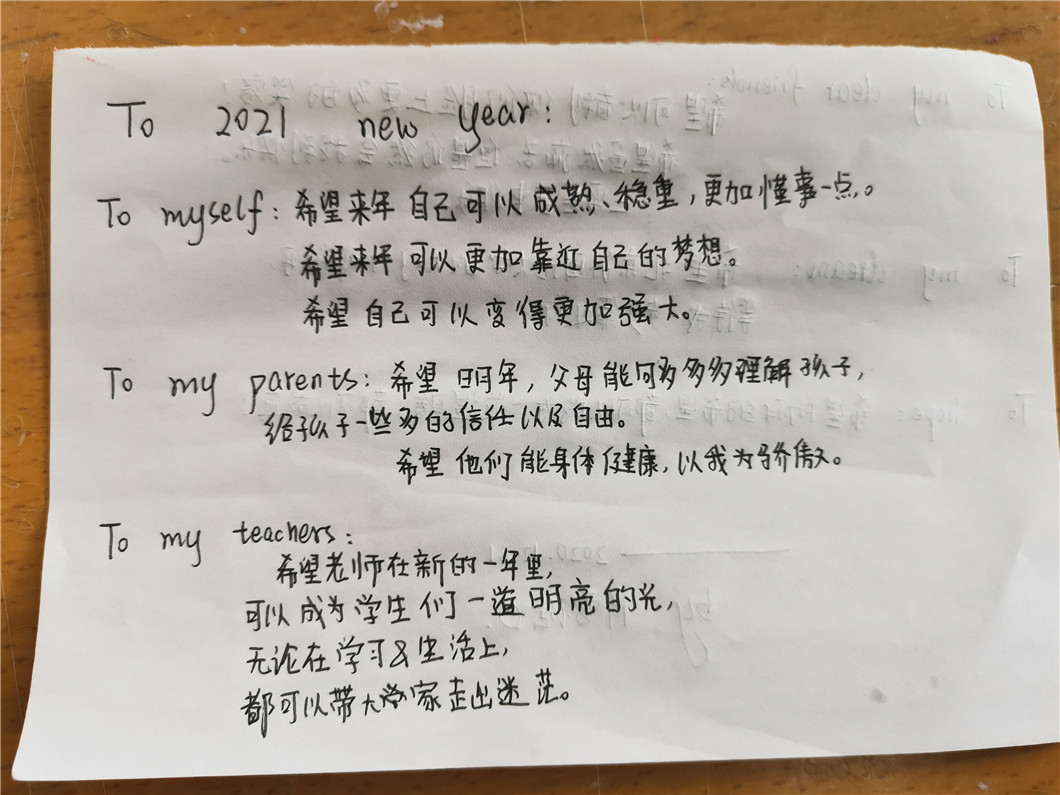 To 2021 new year:
To myself: 希望来年自己可以成熟、稳重，更加懂事一点。
希望来年可以更加靠近自己的梦想。
希望自己可以变得更加强大。
To my parents: 希望明年，父母能何多多多理解孩子，
给孩子一些多的信任以及自由。
希望他们能身体健康，以我为骄傲。
To my teachers:
希望老师在新的一年里，
可以成为学生们一道明亮的光，
无论在学习&生活上，
都可以带大家走出迷茫。